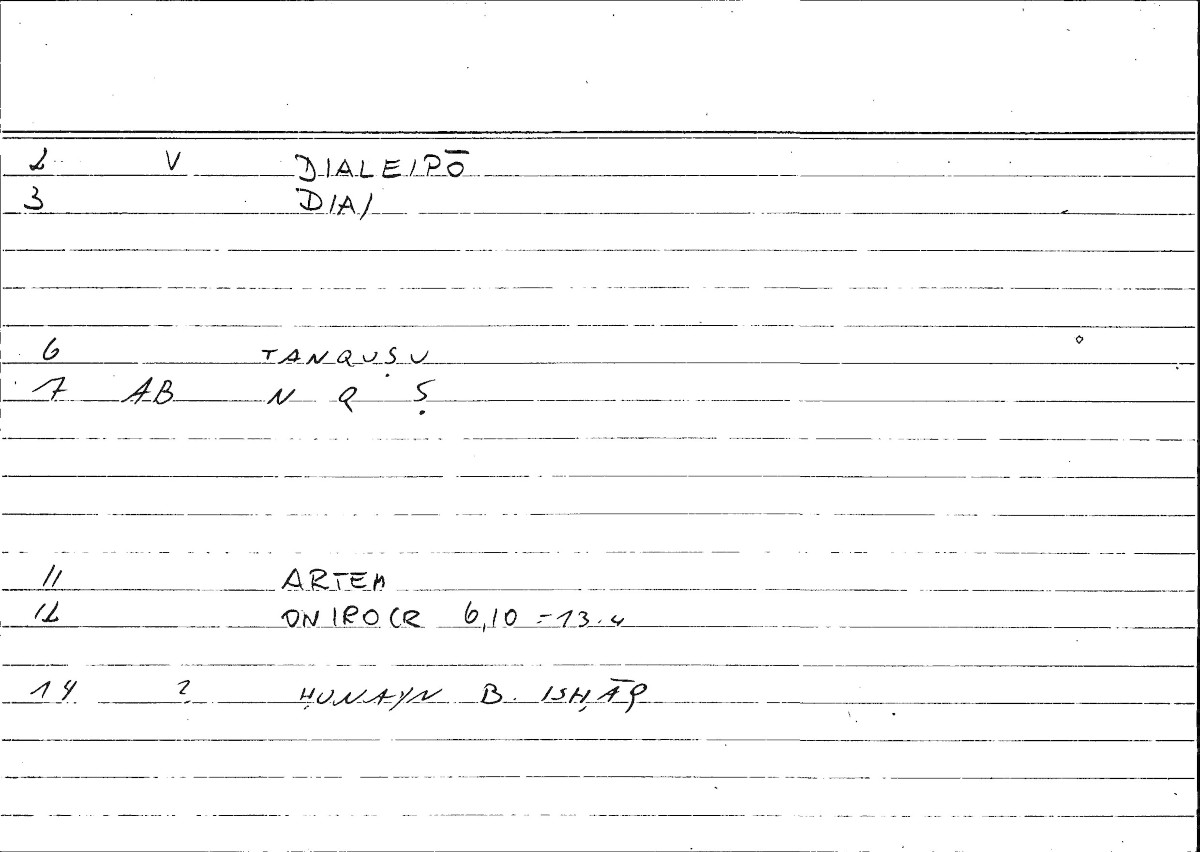 2 V DIALEIPŌ
3 DIA/
6 TANQUṢU
7 AB N Q Ṣ
11 ARTEM
12 ONIROCR 6,10 = 13.4
14 2 ḤUNAYN B. ISḤĀQ